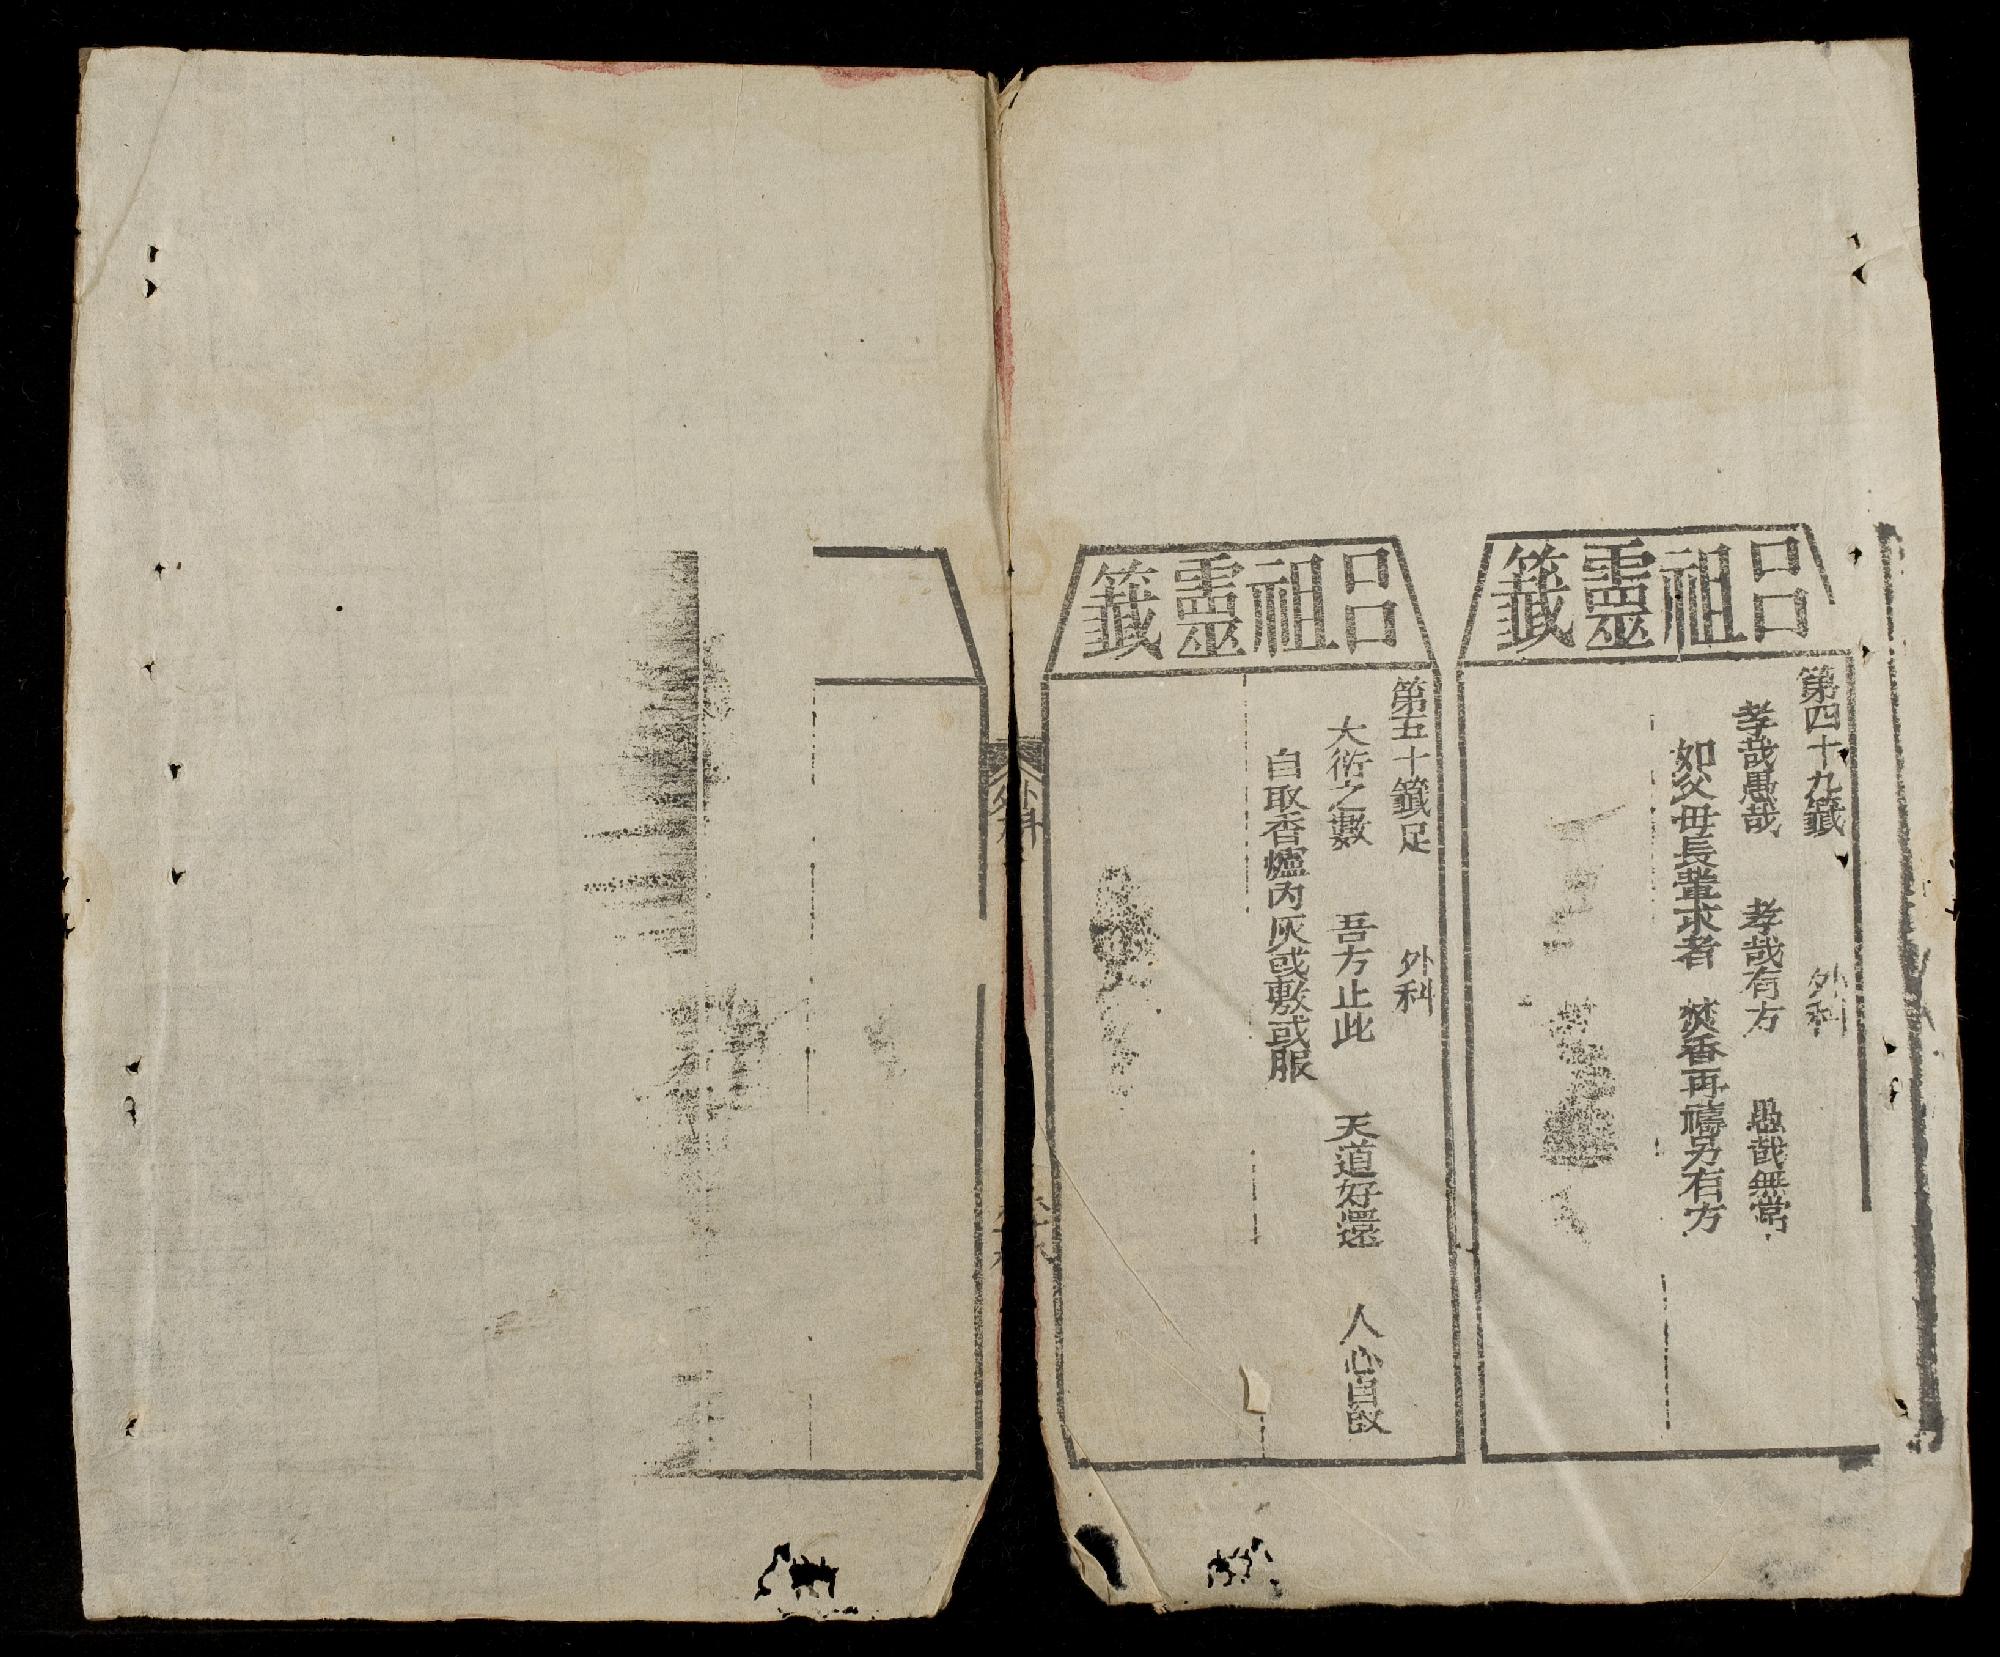 呂祖靈籤
第四十九籤 外科
孝哉愚哉 孝哉有方 愚哉無常
如父毋長輩求者 焚香再禱另有方
呂祖靈籤
第五十籤足 外科
大衍之數 吾方止此 天道好還 人心自
自取香爐內灰或敷或服
外科